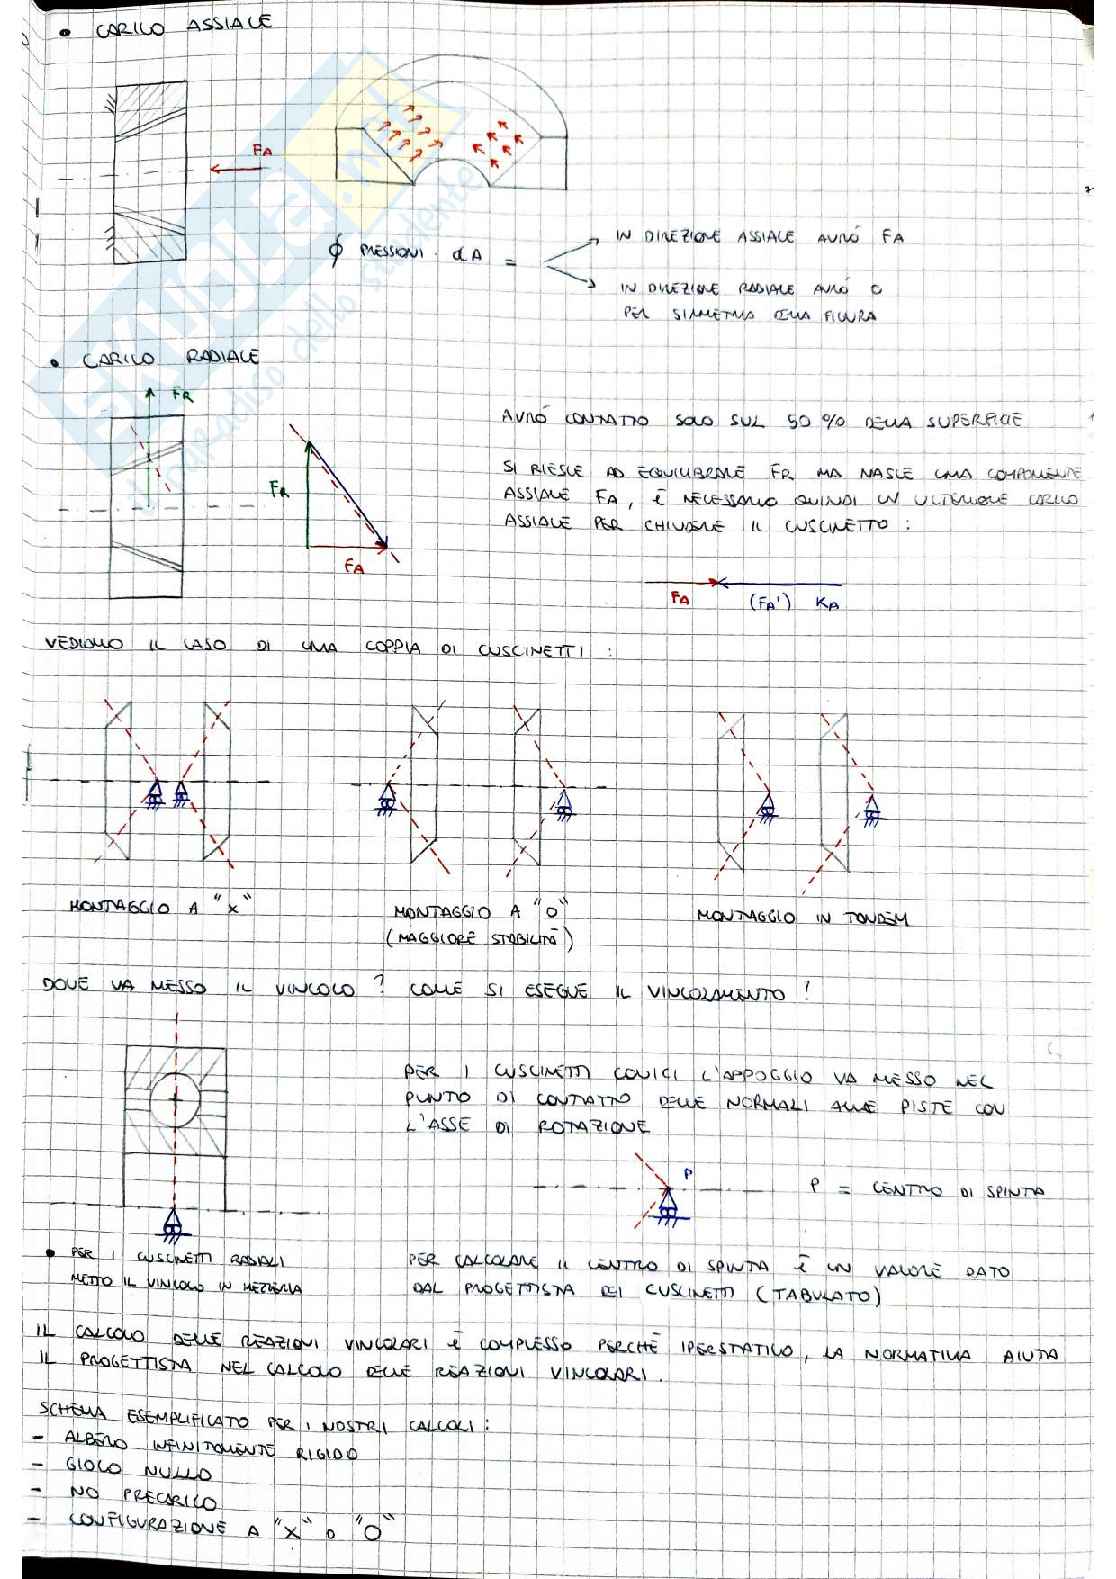 • CARICO ASSIALE
FA
∮ PRESSIONI · dA =
IN DIREZIONE ASSIALE AVRÓ FA
IN DIREZIONE RADIALE AVRÓ 0
PER SIMMETRIA DELLA FIGURA
• CARICO RADIALE
FR
FR
FA
AVRÓ CONTATTO SOLO SUL 50 % DELLA SUPERFICIE
SI RIESCE AD EQUILIBRARE FR MA NASCE UNA COMPONENTE
ASSIALE FA, É NECESSARIO QUINDI UN ULTERIORE CARICO
ASSIALE PER CHIUDERE IL CUSCINETTO :
FA (FA') KA
VEDIAMO IL CASO DI UNA COPPIA DI CUSCINETTI :
MONTAGGIO A "X"
MONTAGGIO A "O"
(MAGGIORE STABILITÀ)
MONTAGGIO IN TANDEM
DOVE VA MESSO IL VINCOLO ? COME SI ESEGUE IL VINCOLAMENTO ?
PER I CUSCINETTI CONICI L'APPOGGIO VA MESSO NEL
PUNTO DI CONTATTO DELLE NORMALI ALLE PISTE CON
L'ASSE DI ROTAZIONE
P
P = CENTRO DI SPINTA
• PER I CUSCINETTI RADIALI
METTO IL VINCOLO IN MEZZERIA
PER CALCOLARE IL CENTRO DI SPINTA É UN VALORE DATO
DAL PROGETTISTA DEI CUSCINETTI (TABULATO)
IL CALCOLO DELLE REAZIONI VINCOLARI É COMPLESSO PERCHÉ IPERSTATICO, LA NORMATIVA AIUTA
IL PROGETTISTA NEL CALCOLO DELLE REAZIONI VINCOLARI.
SCHEMA ESEMPLIFICATO PER I NOSTRI CALCOLI :
- ALBERO INFINITAMENTE RIGIDO
- GIOCO NULLO
- NO PRECARICO
- CONFIGURAZIONE A "X" O "O"